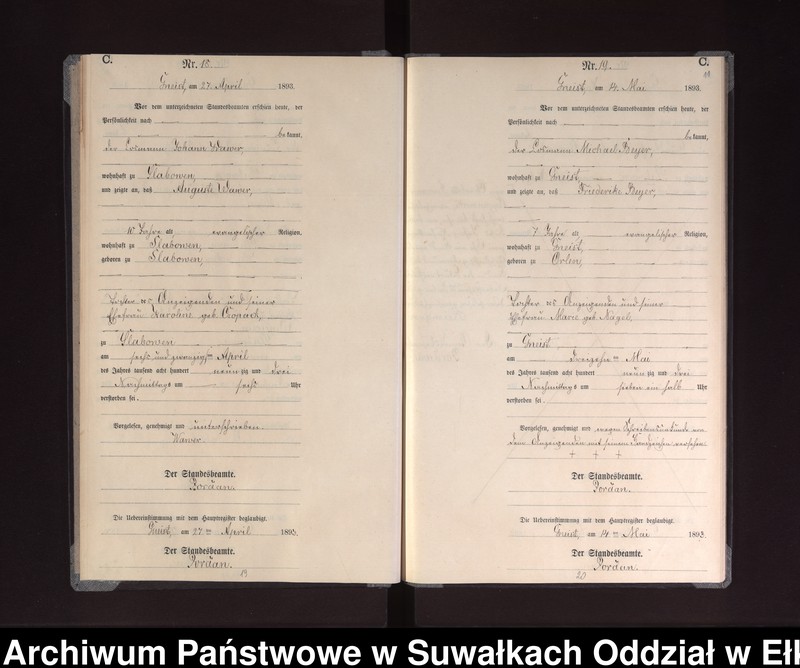 C.
Nr. 18.
Gneist, am 27. April 1893.
Vor dem unterzeichneten Standesbeamten erschien heute, der
Persönlichkeit nach
bekannt,
der Losmann Johann Wawer,
wohnhaft zu Glabowen,
und zeigte an, daß Auguste Wawer,
10 Jahre alt evangelischer Religion,
wohnhaft zu Glabowen,
geboren zu Glabowen,
Tochter des Anzeigenden und seiner
Ehefrau Karoline geb. Czopach,
zu Glabowen
am sechs und zwanzigsten April
des Jahrs tausend acht hundert neunzig und drei
Nachmittags um sechs Uhr
verstorben sei.
Vorgelesen, genehmigt und unterschrieben.
Wawer.
Der Standesbeamte.
Pordan.
Die Uebereinstimmung mit dem Hauptregister beglaubigt.
Gneist, am 27ten April 1893.
Der Standesbeamte.
Pordan.
19
C.
Nr. 19.
Gneist, am 14. Mai 1893.
Vor dem unterzeichneten Standesbeamten erschien heute, der
Persönlichkeit nach
bekannt,
der Losmann Michael Beyer,
wohnhaft zu Gneist,
und zeigte an, daß Friederike Beyer,
7 Jahre alt, evangelischer Religion,
wohnhaft zu Gneist,
geboren zu Orlen,
Tochter des Anzeigenden und seiner
Ehefrau Marie geb. Nagel,
zu Gneist
am dreizehnten Mai
des Jahrs tausend acht hundert neunzig und drei
Nachmittags um sieben ein halb Uhr
verstorben sei.
Vorgelesen, genehmigt und wegen Schreibensunkunde von
dem Anzeigenden mit seinem Handzeichen versehen.
+ + +
Der Standesbeamte.
Pordan.
Die Uebereinstimmung mit dem Hauptregister beglaubigt.
Gneist, am 14ten Mai 1893.
Der Standesbeamte.
Pordan.
20
Archiwum Państwowe w Suwałkach Oddział w Eł